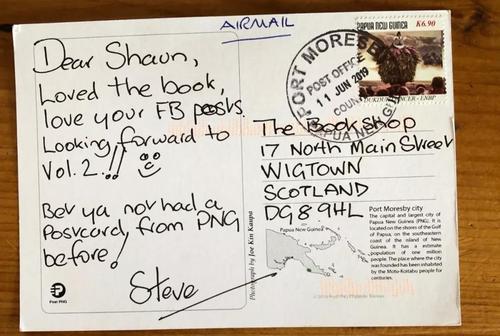 AIRMAIL
PAPUA NEW GUINEA
K6.90
DUKDUK DANCER - ENBP
PORT MORESBY
POST OFFICE
11 JUN 2019
PAPUA NEW GUINEA
Dear Shaun,
Loved the book,
love your FB posts.
Looking forward to
Vol.2!!!
Bet ya not had a
Postcard, from PNG
before!
Steve
The Book Shop
17 North Main Street
WIGTOWN
SCOTLAND
DG8 9HL
Port Moresby city
The capital and largest city of
Papua New Guinea (PNG). It is
located on the shores of the Gulf
of Papua, on the southeastern
coast of the island of New
Guinea. It has an estimate
population of one million
people. The place where the city
was founded has been inhabited
by the Motu-Koitabu people for
centuries.
Papua New Guinea
Photograph by Joe Kin Kaupa
Post PNG